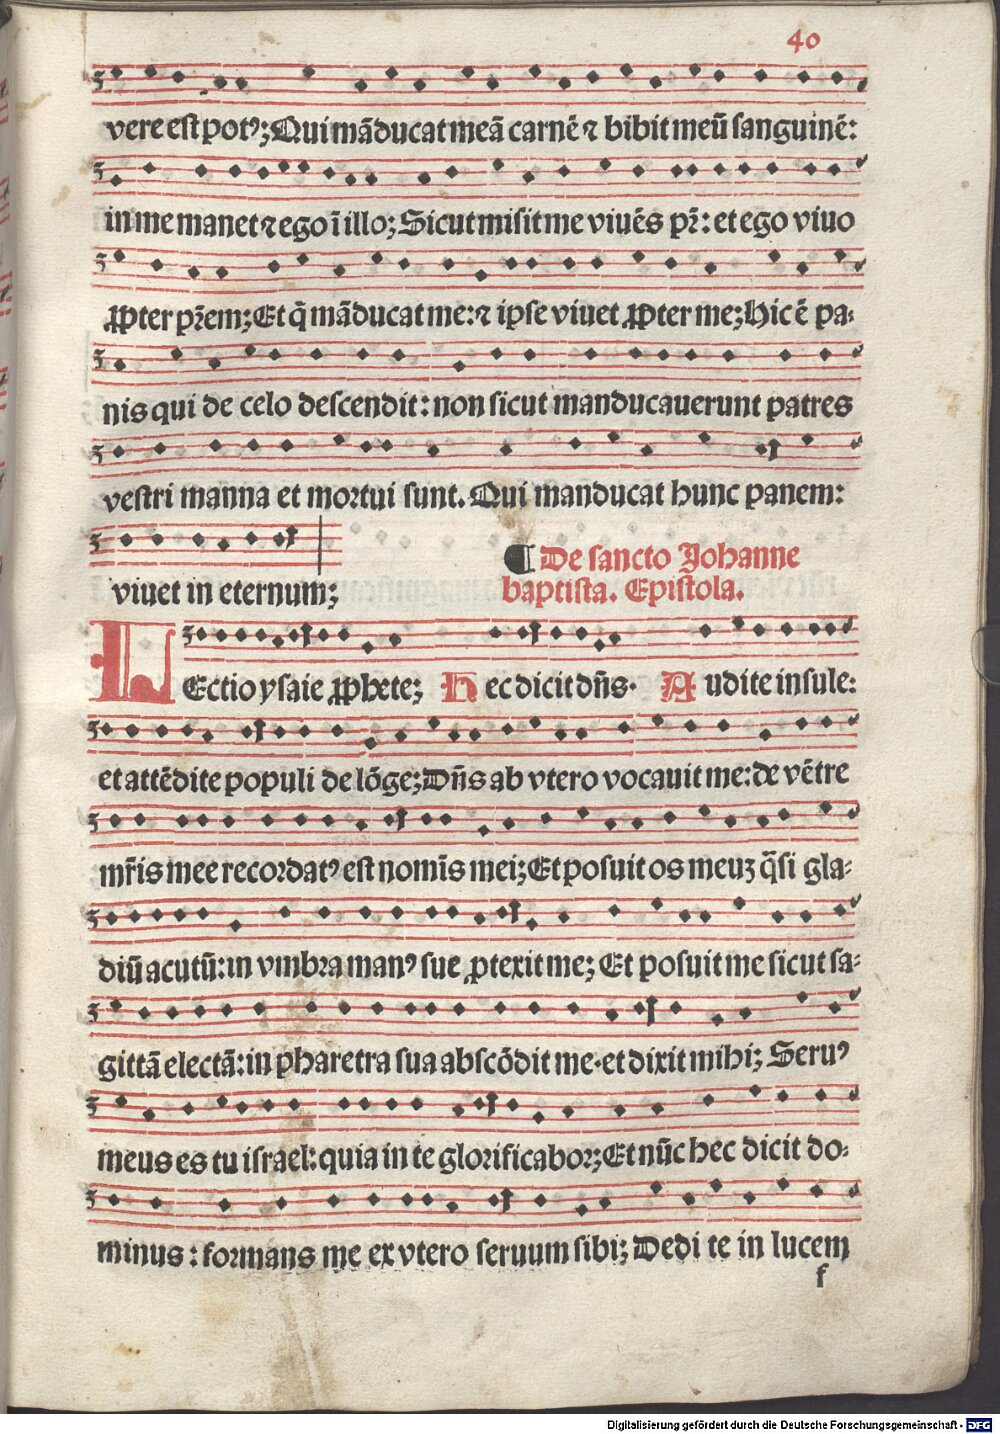 40
vere est potꝰ; Qui mãducat meã carnẽ ⁊ bibit meũ sanguinẽ:
in me manet ⁊ ego ĩ illo; Sicut misit me viuẽs pr̃: et ego viuo
ꝓpter pr̃em; Et q̃ mãducat me: ⁊ ipse viuet ꝓpter me; Hic ẽ pa⸗
nis qui de celo descendit: non sicut manducauerunt patres
vestri manna et mortui sunt. Qui manducat hunc panem:
viuet in eternum;
¶ De sancto Johanne
baptista. Epistola.
LEctio ysaie ꝓphete; Hec dicit dñs. Audite insule:
et attẽdite populi de lõge; Dñs ab vtero vocauit me: de vẽtre
mr̃is mee recordatꝰ est nomĩs mei; Et posuit os meuꝫ q̃si gla⸗
diũ acutũ: in vmbra manꝰ sue ꝓtexit me; Et posuit me sicut sa⸗
gittã electã: in pharetra sua abscõdit me. et dixit mihi; Seruꝰ
meus es tu israel: quia in te glorificabor; Et nũc hec dicit do⸗
minus: formans me ex vtero seruum sibi; Dedi te in lucem
f
Digitalisierung gefördert durch die Deutsche Forschungsgemeinschaft - DFG